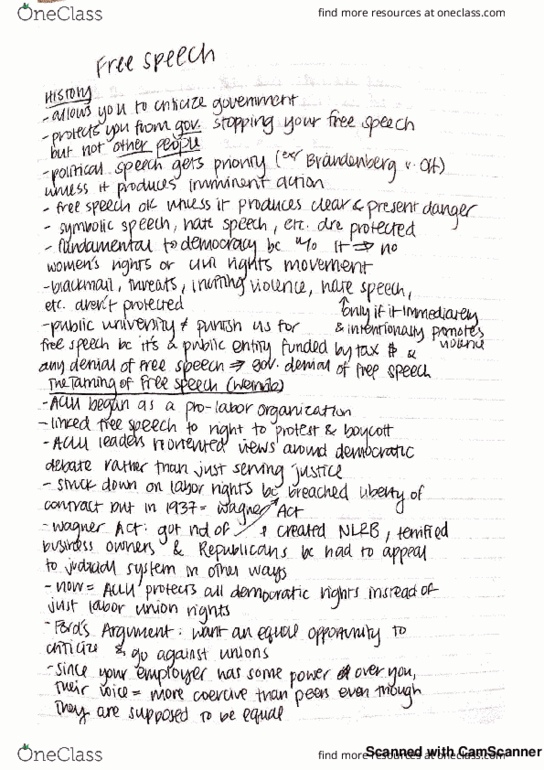 OneClass
find more resources at oneclass.com
Free speech
History
- allows you to criticize government
- protects you from gov. stopping your free speech
but not other people
- political speech gets priority (ex: Brandenberg v. OH)
unless it produces imminent action
- free speech ok unless it produces clear & present danger
- symbolic speech, hate speech, etc. are protected
- fundamental to democracy bc w/o it ⇒ no
women's rights or civil rights movement
- blackmail, threats, inciting violence, hate speech,
etc. aren't protected
↑only if it immediately
& intentionally promotes
violence
- public university ≠ punish us for
free speech bc it's a public entity funded by tax $ &
any denial of free speech ⇒ gov. denial of free speech
The Taming of Free speech (Weinrib)
- ACLU began as a pro-labor organization
- linked free speech to right to protest & boycott
- ACLU leaders reoriented views around democratic
debate rather than just serving justice
- struck down on labor rights bc breached liberty of
contract but in 1937 = Wagner Act
- Wagner Act: got rid of ↗, created NLRB, terrified
business owners & Republicans bc had to appeal
to judicial system in other ways
- now = ACLU protects all democratic rights instead of
just labor union rights
- Ford's Argument: want an equal opportunity to
criticize & go against unions
- since your employer has some power over you,
their voice = more coercive than peers even though
they are supposed to be equal
OneClass
find more resources at oneclass.com
Scanned with CamScanner